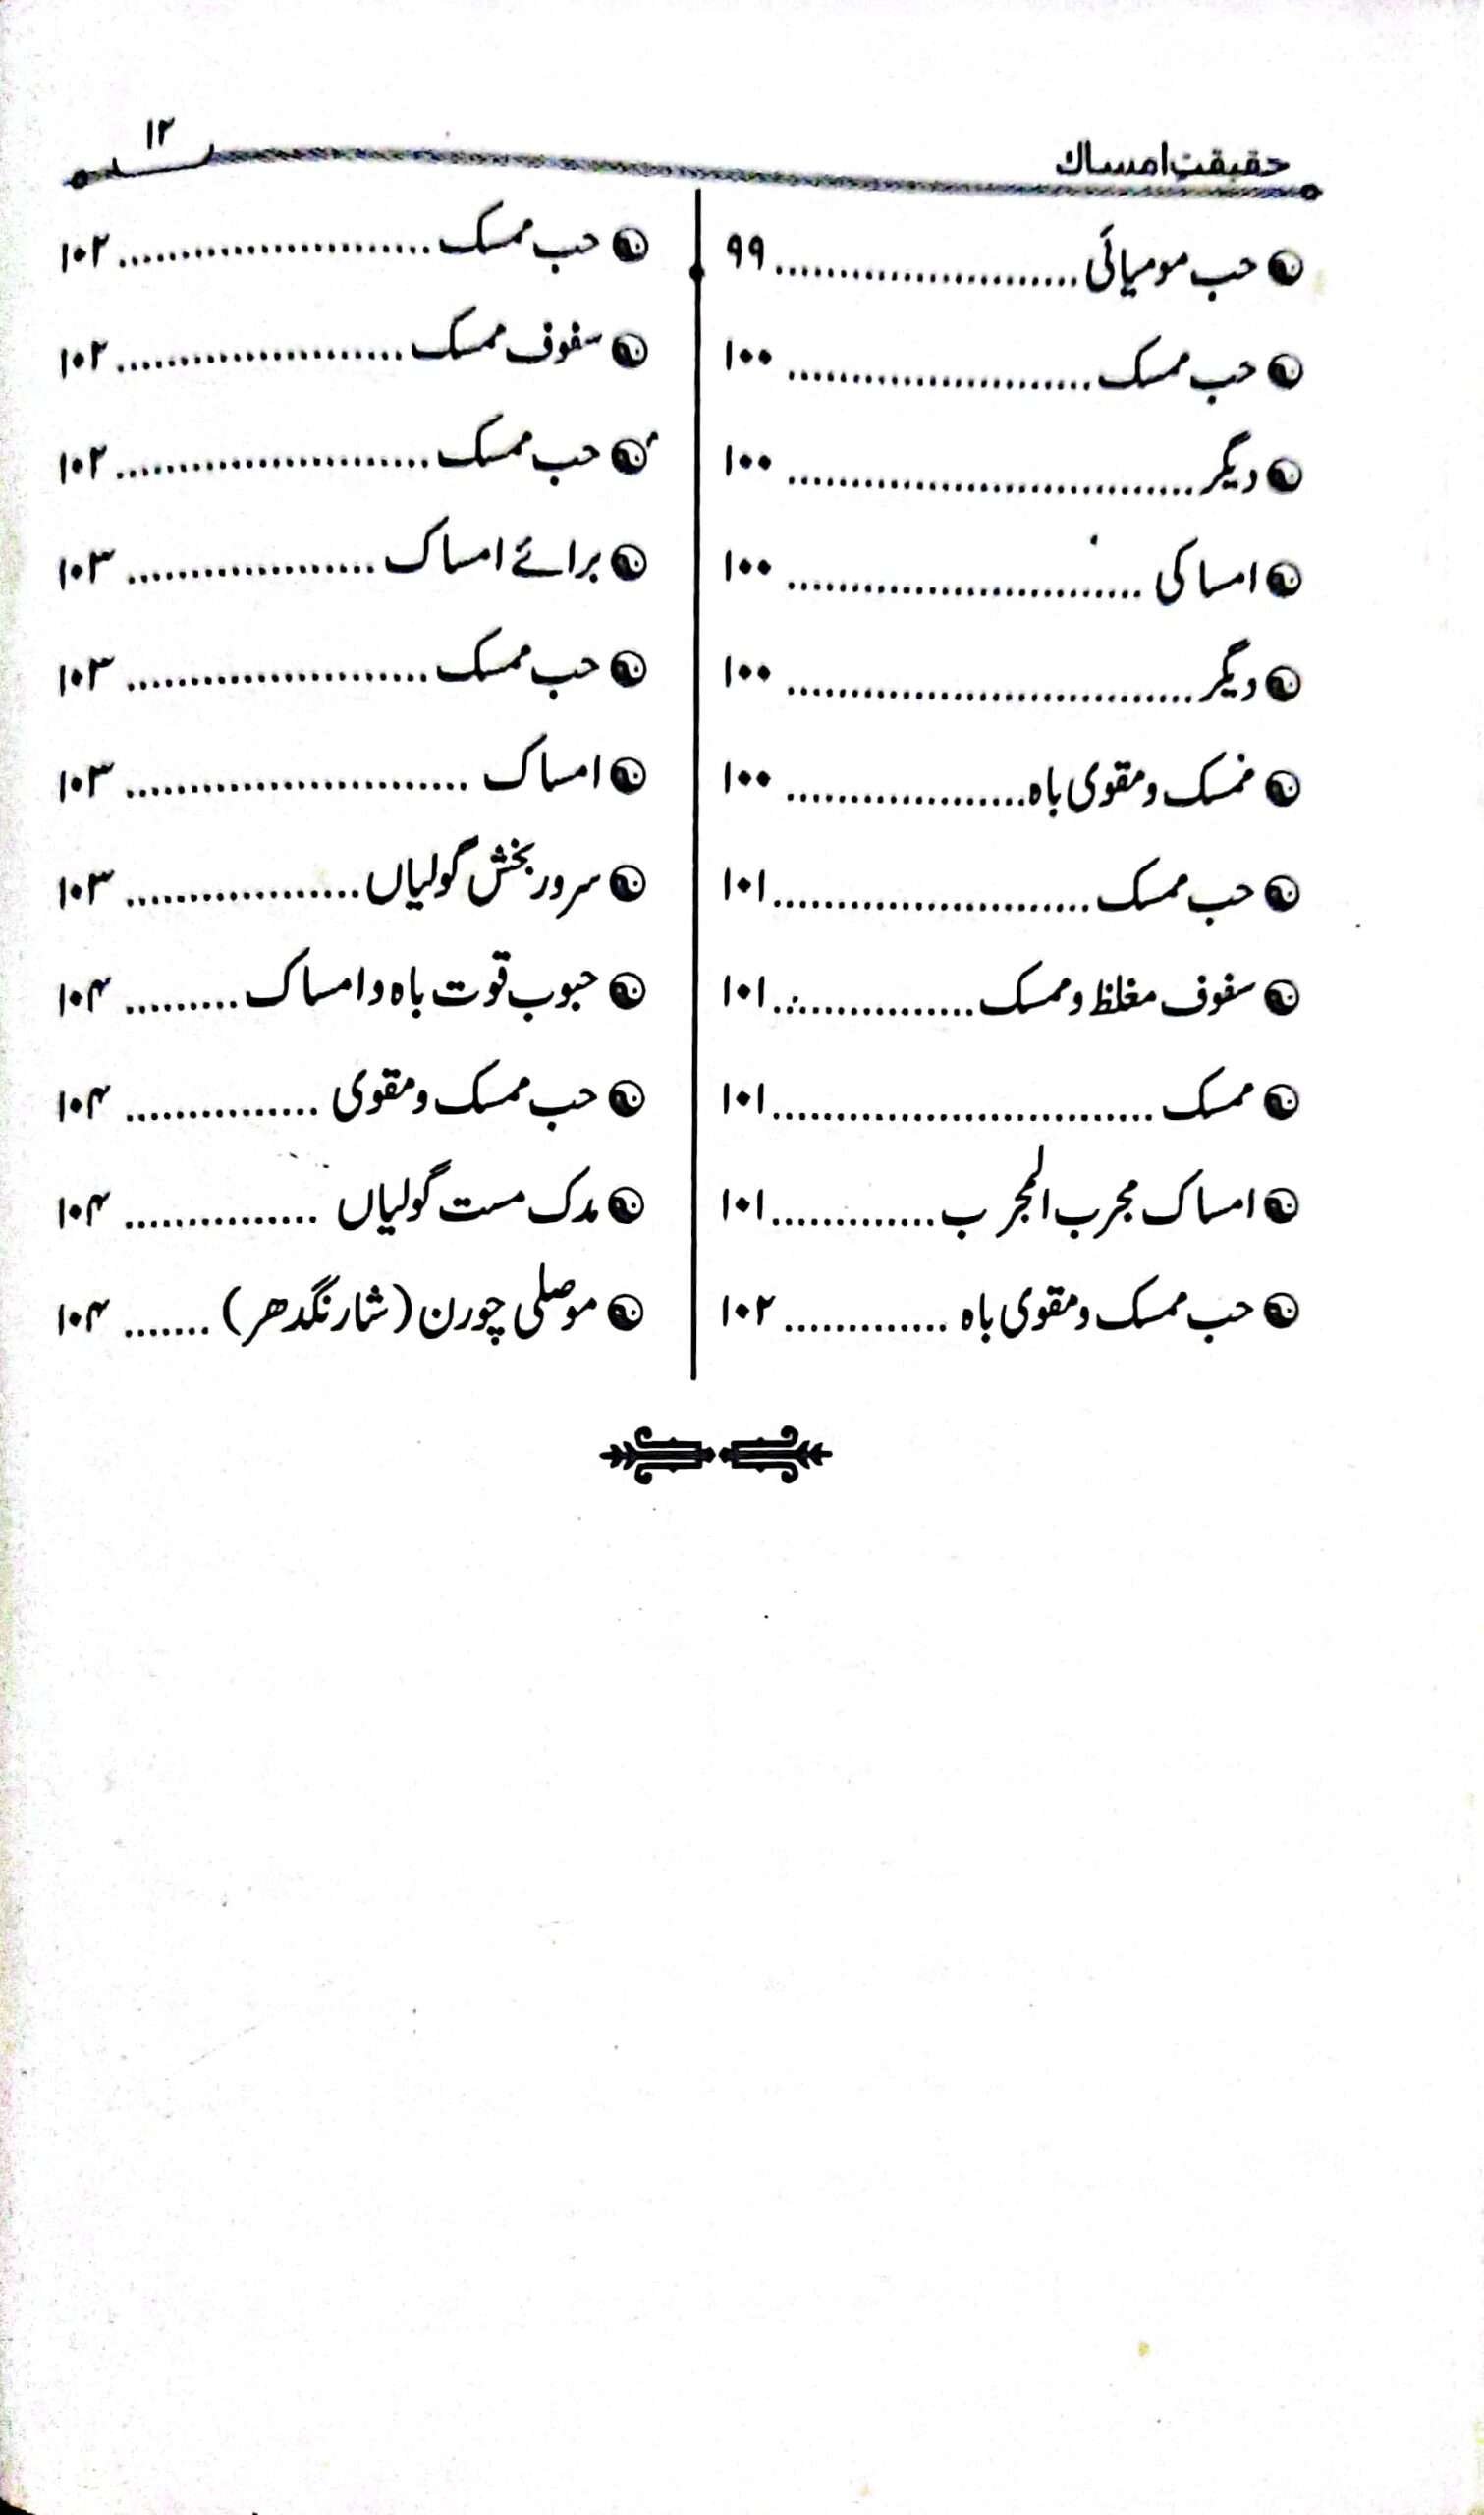 حقیقت امساک
۱۲
حب مومیائی ........................ ۹۹
حب ممسک ........................ ۱۰۰
دیگر ................................ ۱۰۰
امساکی ............................ ۱۰۰
دیگر ................................ ۱۰۰
ممسک و مقوی باہ ................... ۱۰۰
حب ممسک ......................... ۱۰۱
سفوف مغلظ و ممسک ................ ۱۰۱
ممسک .............................. ۱۰۱
امساک مجرب المجرب ............. ۱۰۱
حب ممسک و مقوی باہ ............. ۱۰۲
حب ممسک ......................... ۱۰۲
سفوف ممسک ....................... ۱۰۲
حب ممسک ......................... ۱۰۲
برائے امساک .................... ۱۰۳
حب ممسک ........................ ۱۰۳
امساک ........................... ۱۰۳
سرور بخش گولیاں ................... ۱۰۳
حبوب قوت باہ و امساک ......... ۱۰۴
حب ممسک و مقوی ............... ۱۰۴
مدک مست گولیاں ............... ۱۰۴
موصلی چورن (شارنگدھر) ....... ۱۰۴